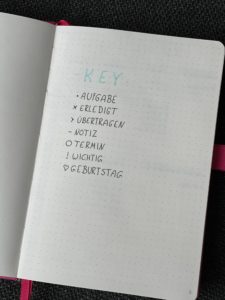 KEY
• AUFGABE
× ERLEDIGT
> ÜBERTRAGEN
– NOTIZ
○ TERMIN
! WICHTIG
♡ GEBURTSTAG